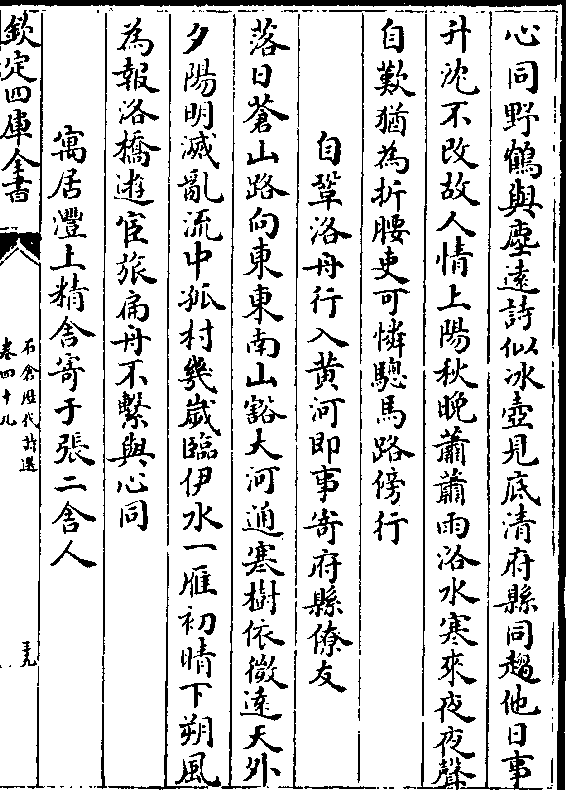 心同野鶴與塵遠詩似冰壺見底清府縣同趨他日事
升沈不改故人情上陽秋晚蕭蕭雨洛水寒來夜夜聲
自歎猶為折腰吏可憐驄馬路傍行
自鞏洛舟行入黄河即事寄府縣僚友
落日蒼山路向東東南山豁大河通寒樹依微遠天外
夕陽明滅亂流中孤村幾歲臨伊水一雁初晴下朔風
為報洛橋逰宦旅扁舟不繫與心同
寓居灃上精舍寄于張二舍人
欽定四庫全書
石倉歷代詩選
卷四十九